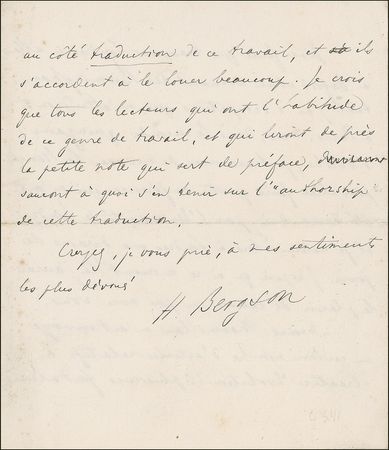 au côté traduction de ce travail, et ils
s'accordent à le louer beaucoup. Je crois
que tous les lecteurs qui ont l'habitude
de ce genre de travail, et qui liront de près
la petite note qui sert de préface,
sauront à quoi s'en tenir sur l'"authorship
de cette traduction.
Croyez, je vous prie, à mes sentiments
les plus dévoués
H. Bergson